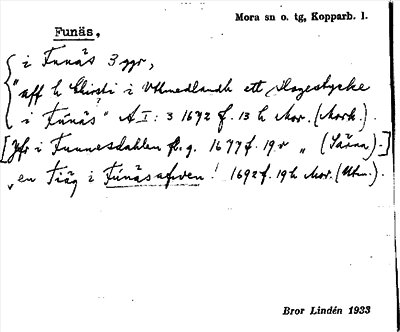 Mora sn o. tg, Kopparb. l.
Funäs.
i Funäs 3 ggr,
"aff h Chirsti i Uttmedlandh ett Slogestycke
i Funäs" A I: 3 1672 f. 13 h Mor. (Mork.).
[Jfr i Funnesdahlen fl. g. 1677 f. 19 v " (Särna).]
"en Tiäg i Funäsafwen! 1692 f. 19 h Mor. (Utm.).
Bror Lindén 1933